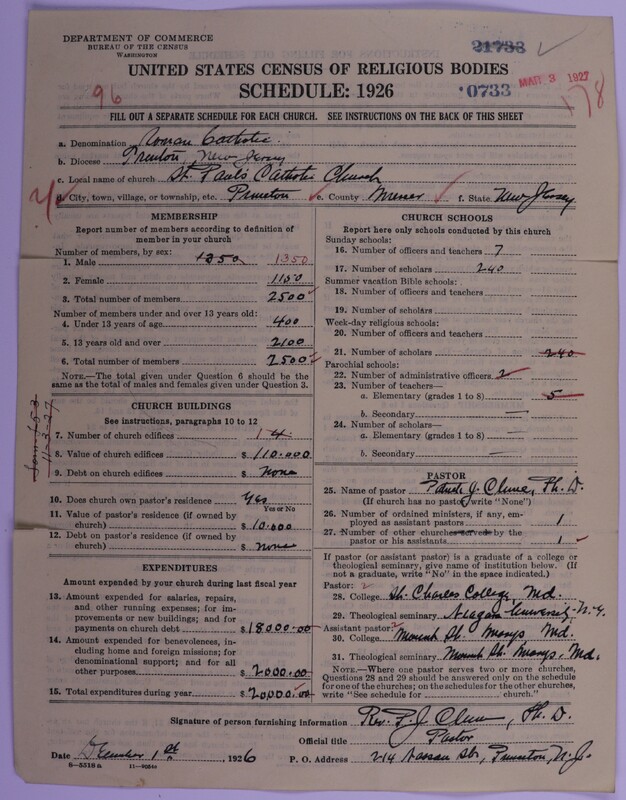 DEPARTMENT OF COMMERCE
BUREAU OF THE CENSUS
WASHINGTON
21733
UNITED STATES CENSUS OF RELIGIOUS BODIES
SCHEDULE: 1926
96
0733
MAR 3 1927
178
FILL OUT A SEPARATE SCHEDULE FOR EACH CHURCH. SEE INSTRUCTIONS ON THE BACK OF THIS SHEET
a. Denomination Roman Catholic
b. Diocese Trenton, New Jersey
c. Local name of church St. Paul's Catholic Church
d. City, town, village, or township, etc. Princeton e. County Mercer f. State New Jersey
MEMBERSHIP
Report number of members according to definition of
member in your church
Number of members, by sex:
1. Male 1350 1350
2. Female 1150
3. Total number of members 2500
Number of members under and over 13 years old:
4. Under 13 years of age 400
5. 13 years old and over 2100
6. Total number of members 2500
NOTE.—The total given under Question 6 should be the
same as the total of males and females given under Question 3.
CHURCH BUILDINGS
See instructions, paragraphs 10 to 12
7. Number of church edifices
8. Value of church edifices $ 110.000
9. Debt on church edifices $ None
10. Does church own pastor's residence Yes
Yes or No
11. Value of pastor's residence (if owned by
church) $ 10.000
12. Debt on pastor's residence (if owned by
church) $ None
EXPENDITURES
Amount expended by your church during last fiscal year
13. Amount expended for salaries, repairs,
and other running expenses; for im-
provements or new buildings; and for
payments on church debt $ 18000.00
14. Amount expended for benevolences, in-
cluding home and foreign missions; for
denominational support; and for all
other purposes $ 2000.00
15. Total expenditures during year $ 20,000.00
CHURCH SCHOOLS
Report here only schools conducted by this church
Sunday schools:
16. Number of officers and teachers 7
17. Number of scholars 240
Summer vacation Bible schools:
18. Number of officers and teachers
19. Number of scholars
Week-day religious schools:
20. Number of officers and teachers
21. Number of scholars 240
Parochial schools:
22. Number of administrative officers 2
23. Number of teachers—
a. Elementary (grades 1 to 8) 5
b. Secondary —
24. Number of scholars—
a. Elementary (grades 1 to 8) —
b. Secondary —
PASTOR
25. Name of pastor Clune, Ph. D.
(If church has no pastor, write "None")
26. Number of ordained ministers, if any, em-
ployed as assistant pastors 1
27. Number of other churches served by the
pastor or his assistants 1
If pastor (or assistant pastor) is a graduate of a college or
theological seminary, give name of institution below. (If
not a graduate, write "No" in the space indicated.)
Pastor: 2
28. College St. Charles College, Md.
29. Theological seminary Niagara University N.Y.
Assistant pastor: 2
30. College Mount St. Marys Md.
31. Theological seminary Mount St. Marys. Md.
NOTE.—Where one pastor serves two or more churches,
Questions 28 and 29 should be answered only on the schedule
for one of the churches; on the schedules for the other churches,
write "See schedule for church."
Signature of person furnishing information Rev. P. J. Clune, Ph. D.
Official title Pastor
Date December 1st, 1926 P. O. Address 214 Nassau Str, Princeton N.J.
8—5318 a